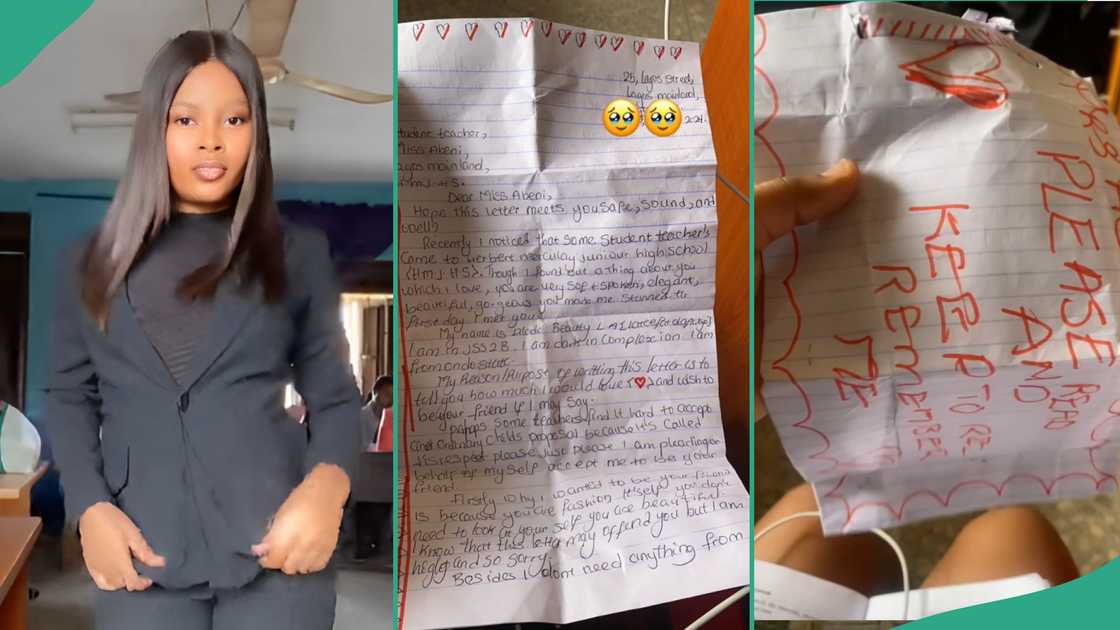 25, Lagos Street,
Lagos mainland,
2024.
student teacher,
Miss Abeni,
Lagos mainland,
HMJHS.
Dear Miss Abeni,
Hope this letter meets you safe, sound, and
well?
Recently I noticed that some student teacher's
came to Herbert maculay juniour high school
(HMJHS). Though I found out a thing about you
which I love, you are very soft spoken, elegant,
beautiful, go-geous you made me stunned the
first day I met you.
My name is Beauty
I am in JSS2B. I am dark in complexion. I am
from ondo state.
My Reason/Purpose of writing this letter is to
tell you how much I would love and wish to
be your friend if I may say.
perhaps some teachers find it hard to accept
Ordinary childs proposal because it's called
disrespect please just please I am pleading on
behalf of myself accept me to be your
friend.
Firstly why I wanted to be your friend
is because you are fashion itself you don't
need to look at your self you are beautiful.
I know that this letter may offend you but I am
and so sorry.
Besides I don't need anything from
PLEASE
READ
AND
KEEP
TO RE
REMEMBER
ME